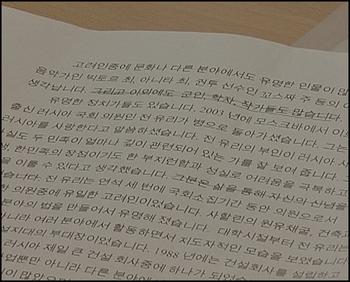 고려인중에 문화나 다른 분야에서도 유명한 인물이 많
음악가인 빅토르 최, 아니타 최, 권투 선수인 꼬스쨔 주 등의 이
생각납니다. 그리고 이외에도 군인, 학자, 작가들도 많습니다.
유명한 정치가들도 있습니다. 2003 년에 모스크바에서 이
출신 러시아 국회 의원인 전 유리가 병으로 돌아가셨습니다. 그는
러시아를 사랑한다고 말씀하셨습니다. 전 유리의 부인이 러시아 사
사실도 두 민족이 얼마나 깊이 관련되어 있는 가를 잘 보여 줍니다.
한민족의 장점이기도 한 부지런함과 성실로 어려움을 극복하고
을 이룰 수 있다고 생각했습니다. 그분은 삶을 통해 자신의 신념을
전 유리는 연석 세 번에 국회소집기간 동안 의원으로서
의원중에 유일한 고려인이었습니다. 사할린의 원유채굴, 건축과
분야의 법을 만들어서 유명해 졌습니다. 대학시절부터 전 유리는
아니라 여러 분야에서 활동하면서 지도자적인 모습을 보였습니다
설지대의 부대장이었습니다. 1988 년에는 건설회사를 설립하고
러시아 제일 큰 건설 회사중에 하나가 되었습
업뿐만 아니라 다른 분야에서도